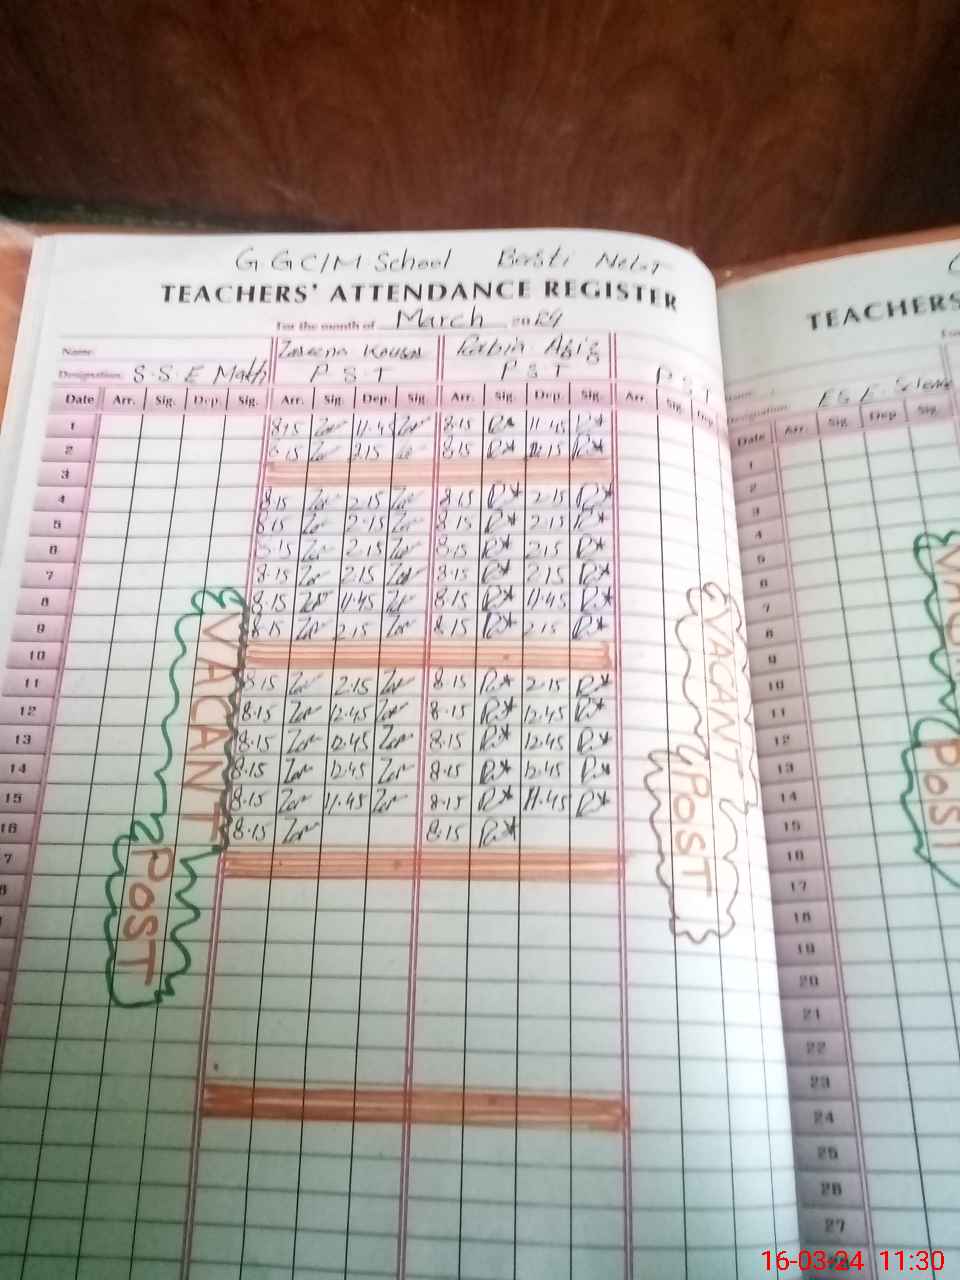 G G C/M School Basti
TEACHERS' ATTENDANCE REGISTER
For the month of March 2024
Name:
Designation: S.S.E Math P S T P S T P S T
Date Arr. Sig. Dep. Sig. Arr. Sig. Dep. Sig. Arr. Sig. Dep. Sig. Arr. Sig. Dep
1 8:15 11.45 8:15 11.45
2 8:15 2:15 8:15 2:15
3
4 8:15 2.15 8:15 2.15
5 8:15 2.15 8:15 2.15
6 8:15 2.15 8:15 2.15
7 8:15 2.15 8:15 2.15
8 8:15 11.45 8:15 11.45
9 8:15 2.15 8:15 2.15
10
11 8:15 2.15 8:15 2.15
12 8:15 12.45 8:15 12.45
13 8:15 12.45 8:15 12.45
14 8:15 12.45 8:15 12.45
15 8:15 11.45 8:15 11.45
16 8:15 8:15
7
VACANT
POST
VACANT
POST
TEACHERS
Designation: ESE. Science
Date Arr. Sig. Dep. Sig.
1
2
3
4
5
6
7
8
9
10
11
12
13
14
15
16
17
18
19
20
21
22
23
24
25
26
27
POST
16-03-24 11:30